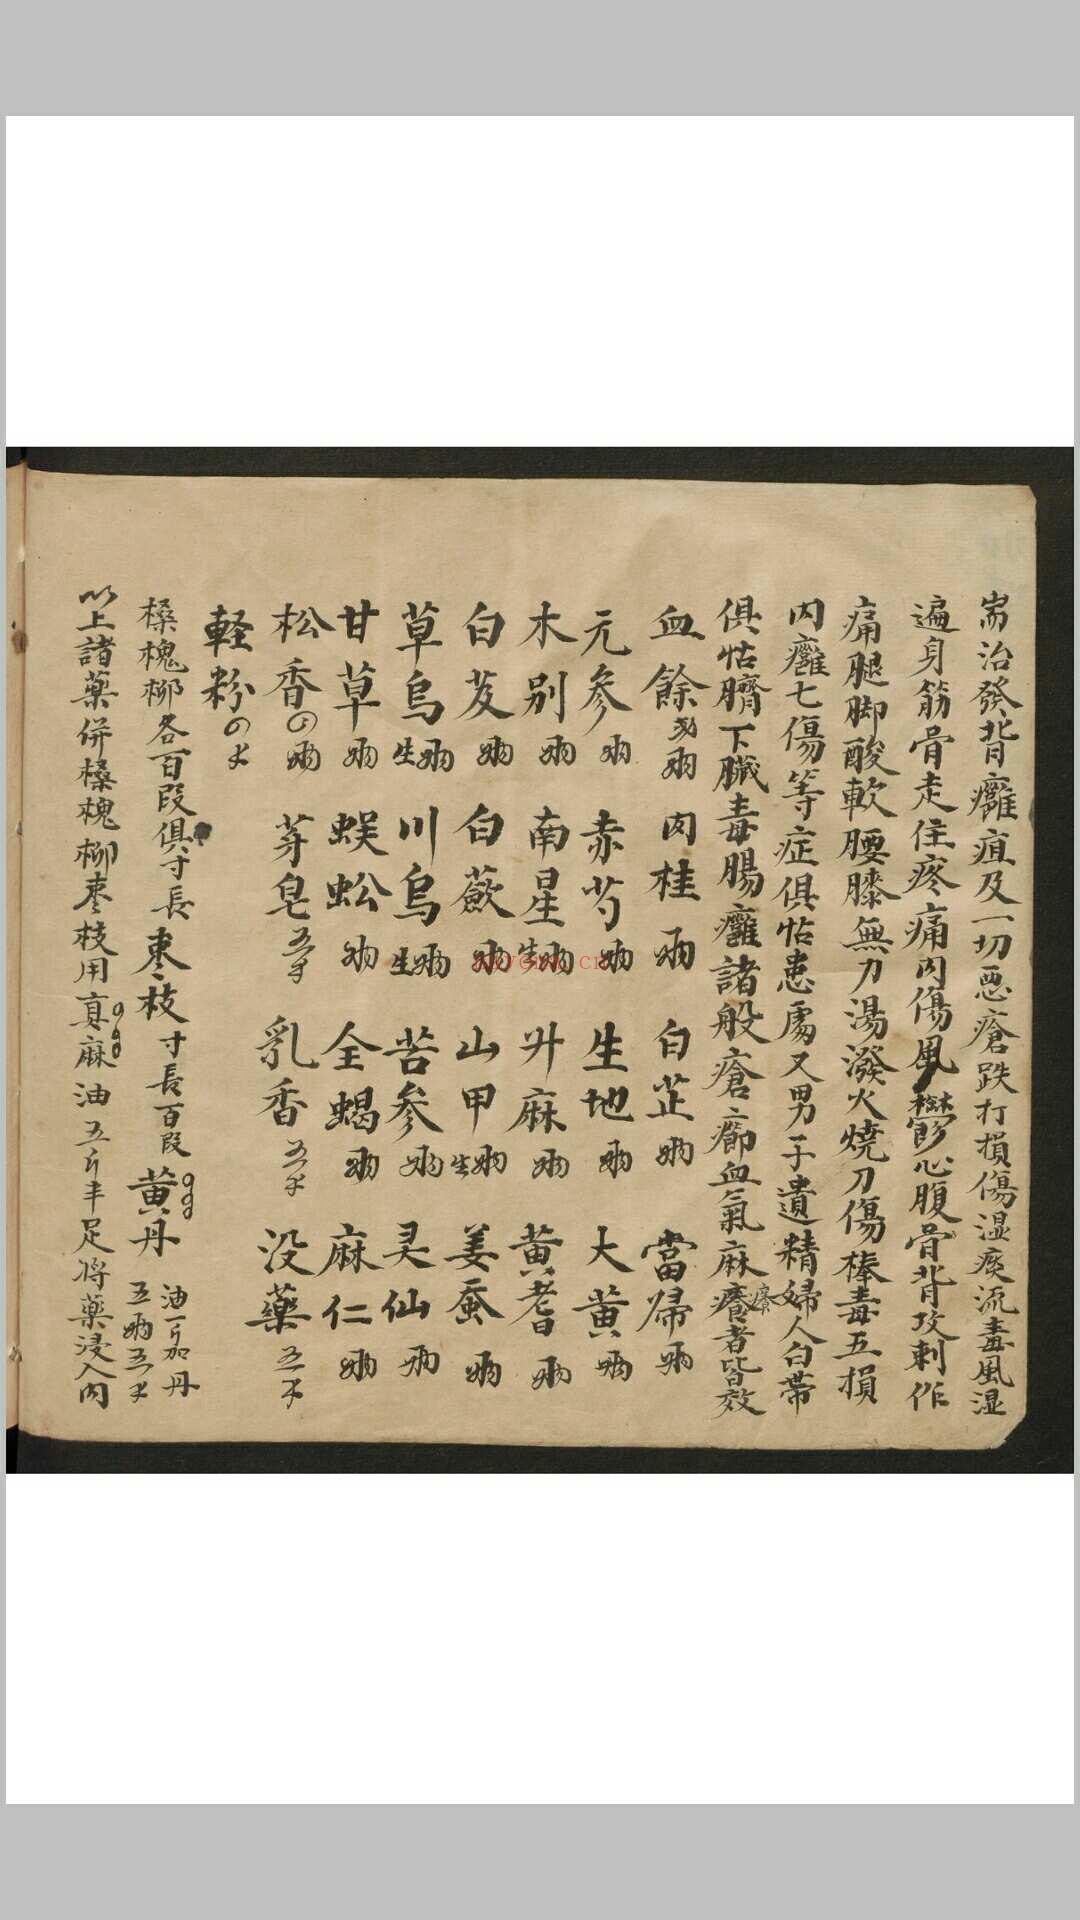 耑治發背癰疽及一切惡瘡跌打損傷湿痰流毒風湿
遍身筋骨走住疼痛内傷風欝心腹骨背攻刺作
痛腿脚酸軟腰膝無力湯潑火燒刀傷棒毒五損
内癰七傷等症俱怗患處又男子遺精婦人白带
俱怗臍下臟毒腸癰諸般瘡癤血氣麻癢者皆效
血餘 肉桂 白芷 當帰
元參 赤芍 生地 大黄
木别 南星 升麻 黄耆
白芨 白蘞 山甲 姜蚕
草烏 川烏 苦參 灵仙
甘草 蜈蚣 全蝎 麻仁
松香 芽皂 乳香 没藥
軽粉
槡槐柳各百段俱寸長枣枝寸長百段黄丹油一斤加丹五兩五才
以上諸藥併槡槐柳枣枝用真麻油五斤半足将藥浸入内